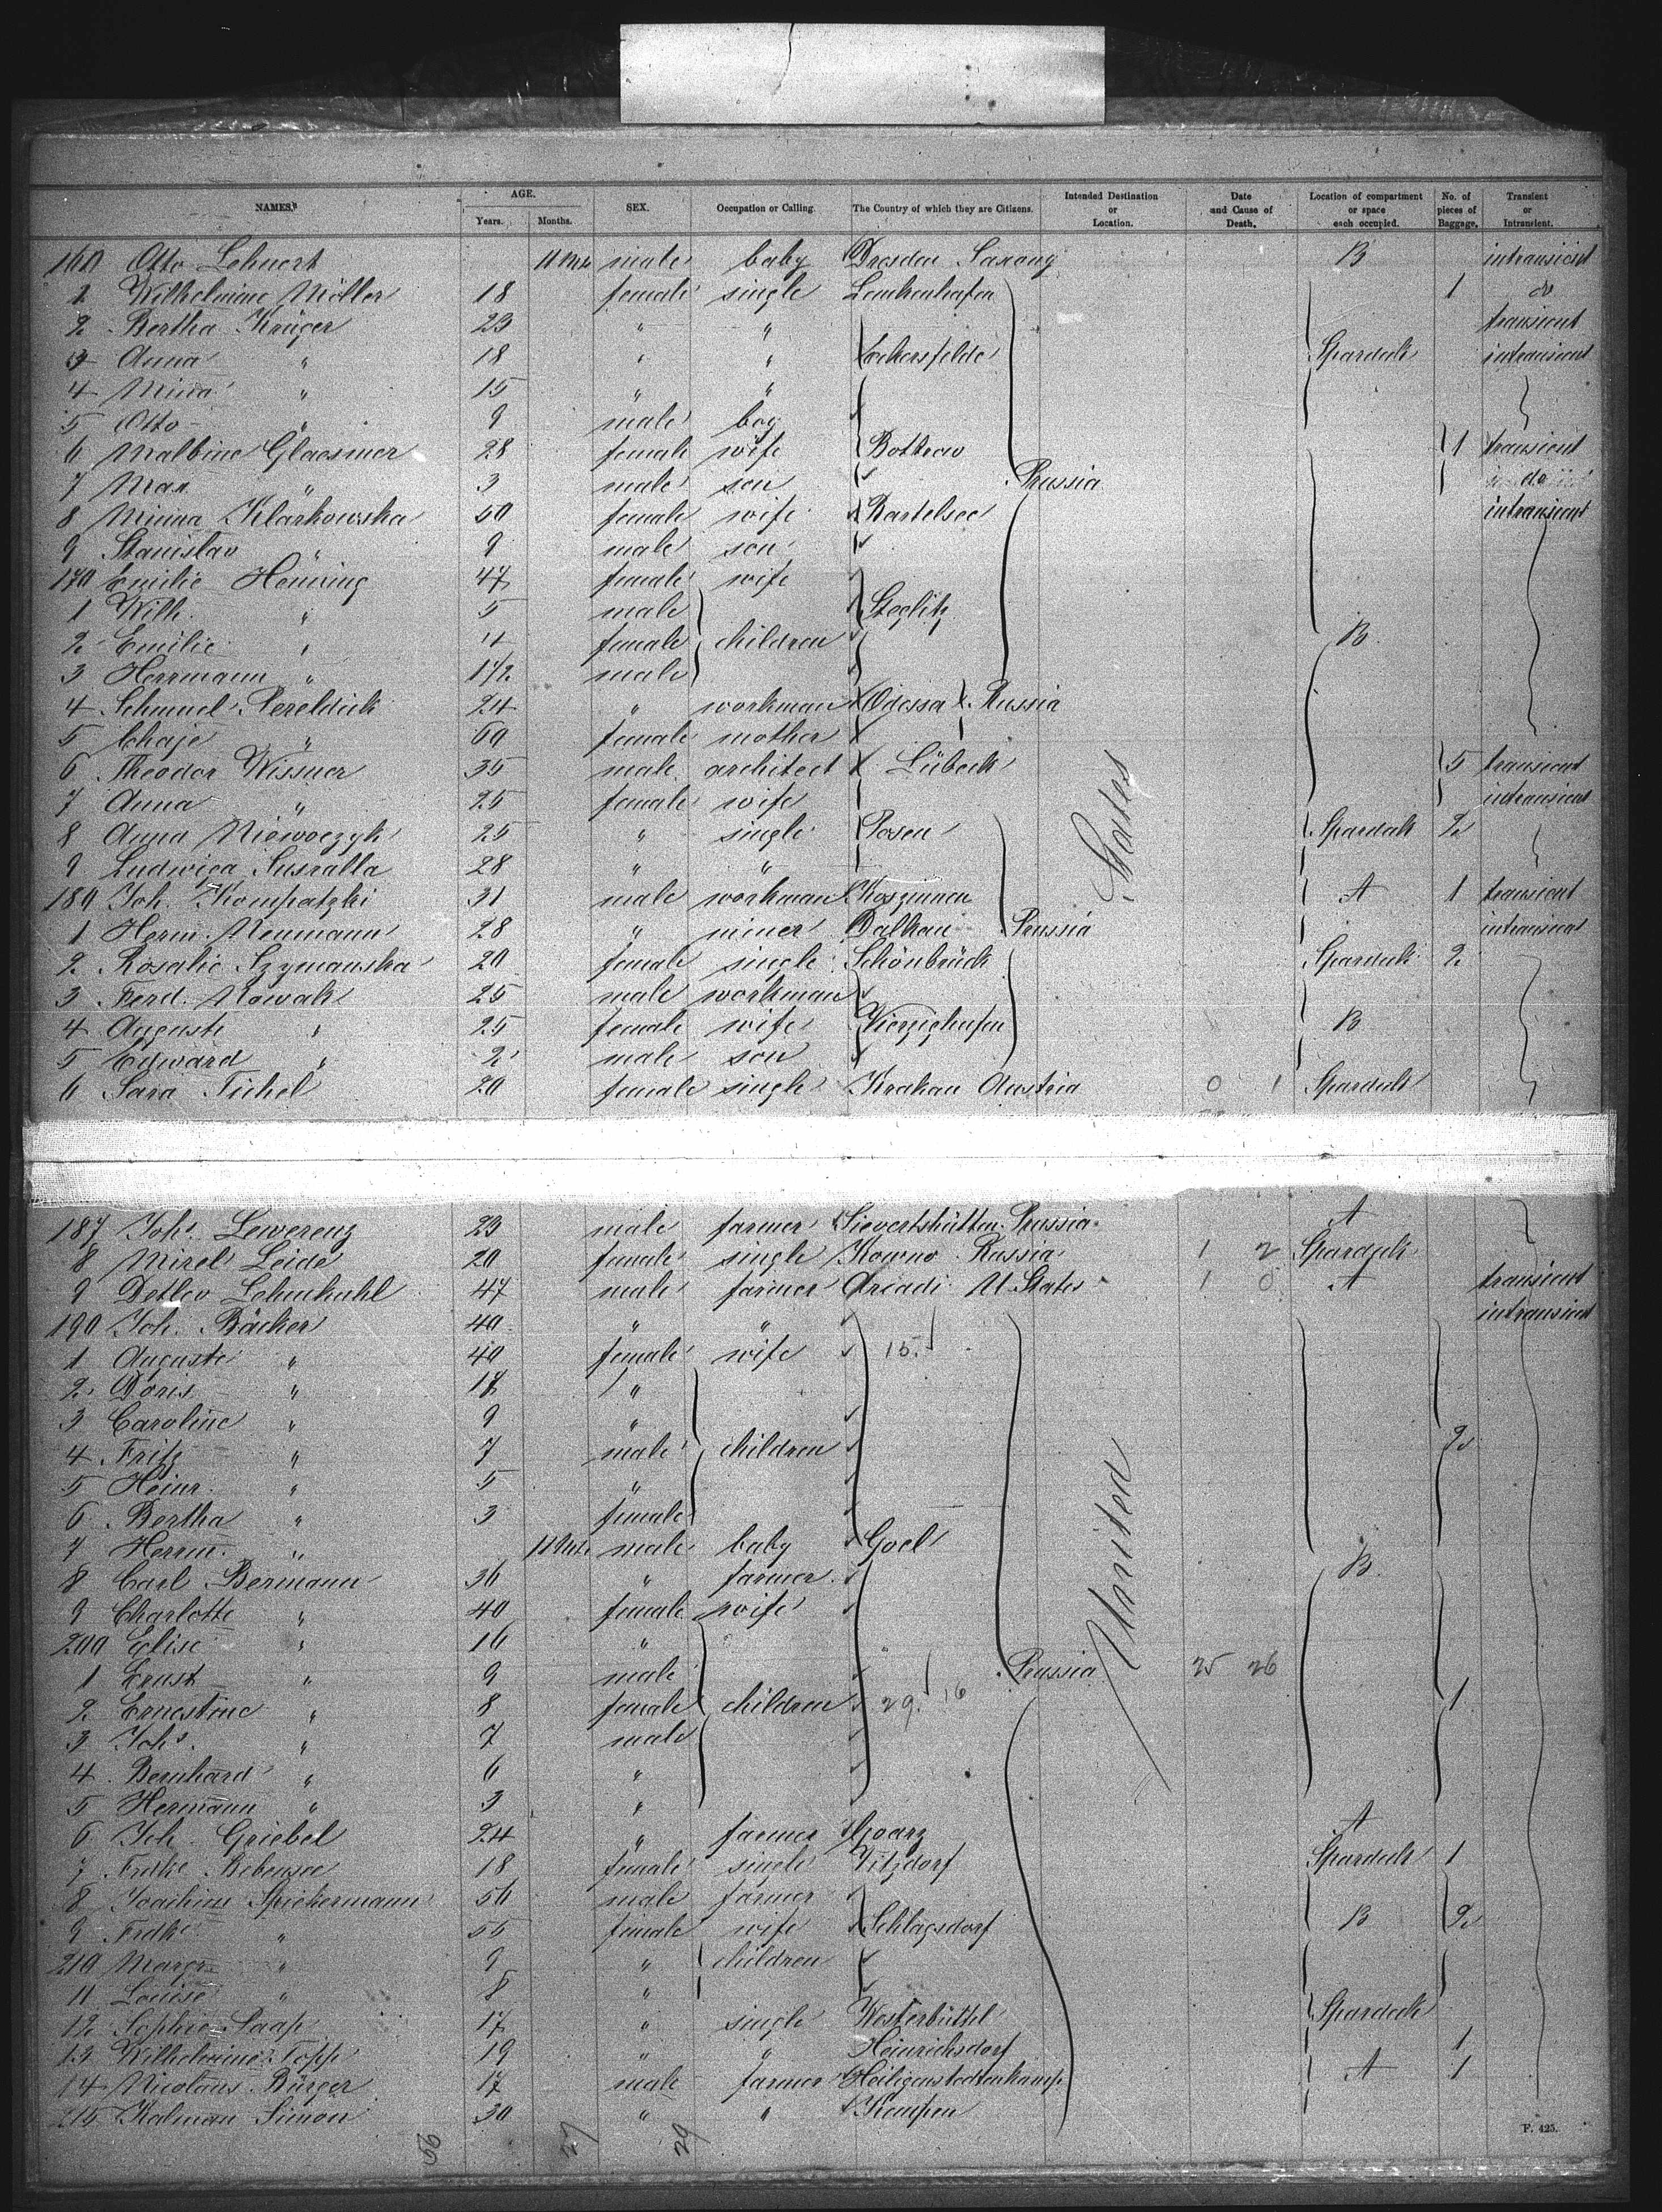 NAMES. AGE. Years. Months. SEX. Occupation or Calling. The Country of which they are Citizens. Intended Destination or Location. Date and Cause of Death. Location of compartment or space each occupied. No. of pieces of Baggage. Transient or Intransient.
160 Otto Lehnert 11 Mts male baby Dresden Saxony B intransient
1 Wilhelmine Möller 18 female single Lemkenhafen 1 do
2 Bertha Krüger 23 " " transient
3 Anna " 18 " " Lockersfelde Spardeck intransient
4 Mina " 15 " "
5 Otto " 9 male boy
6 Malbine Glaesmer 28 female wife Bottrow 1 transient
7 Max " 3 male son Prussia do
8 Minna Klarkowska 50 female wife Bartelsee intransient
9 Stanislav " 9 male son
170 Emilie Henning 47 female wife
1 Wilh. " 5 male Steglitz
2 Emilie " 4 female children B
3 Herrmann " 1 1/2 male
4 Schmuel Pereldick 24 " workman Odessa Russia
5 Chaje " 60 female mother
6 Theodor Wissner 35 male architect Lübeck 5 transient
7 Anna " 25 female wife intransient
8 Anna Niewoczyk 25 " single Posen Spardeck 2
9 Ludwiga Susralla 28 " "
180 Joh. Kompatzki 31 male workman Koszinnen A 1 transient
1 Herm. Neumann 28 " miner Dalkau Prussia intransient
2 Rosalie Szymanska 20 female single Schönbrück Spardeck 2
3 Ferd. Nowak 25 male workman
4 Auguste " 25 female wife Vierzighufen B
5 Edward " 2 male son
6 Sara Fichel 20 female single Krakau Austria 0 1 Spardeck
States
187 Johs. Lewerenz 23 male farmer Sievertshütten Prussia A
8 Mirel Leide 20 female single Kowno Russia 1 2 Spardeck
9 Detlev Lehmkuhl 47 male farmer Arcadi U. States 1 0 A transient
190 Joh. Bäcker 40 " " intransient
1 Auguste " 40 female wife 15.
2 Doris " 17 "
3 Caroline " 9 "
4 Fritz " 7 male children 2
5 Heinr. " 5 "
6 Bertha " 3 female
7 Herrm. " 11 Mts. male baby Goel
8 Carl Bermann 36 " farmer B
9 Charlotte " 40 female wife
200 Elise " 16 "
1 Ernst " 9 male Prussia 25 26
2 Ernestine " 8 female children 29. 16 1
3 Johs. " 7 male
4 Bernhard " 6 "
5 Hermann " 3 "
6 Joh. Griebel 24 " farmer Goarz A
7 Fridke Bebensee 18 female single Vitzdorf Spardeck 1
8 Joachim Spickermann 56 male farmer
9 Fridke " 55 female wife Schlagsdorf B 2
210 Margr. " 9 " children
11 Louise " 8 "
12 Sophie Paap 17 " single Westerbüttel Spardeck
13 Wilhelmine Topp 19 " " Heinrichsdorf 1
14 Nicolaus Bürger 17 male farmer Heiligenstedtenkamp A 1
215 Kalman Simon 30 " " Kempen
United
56 27 29
F. 425.